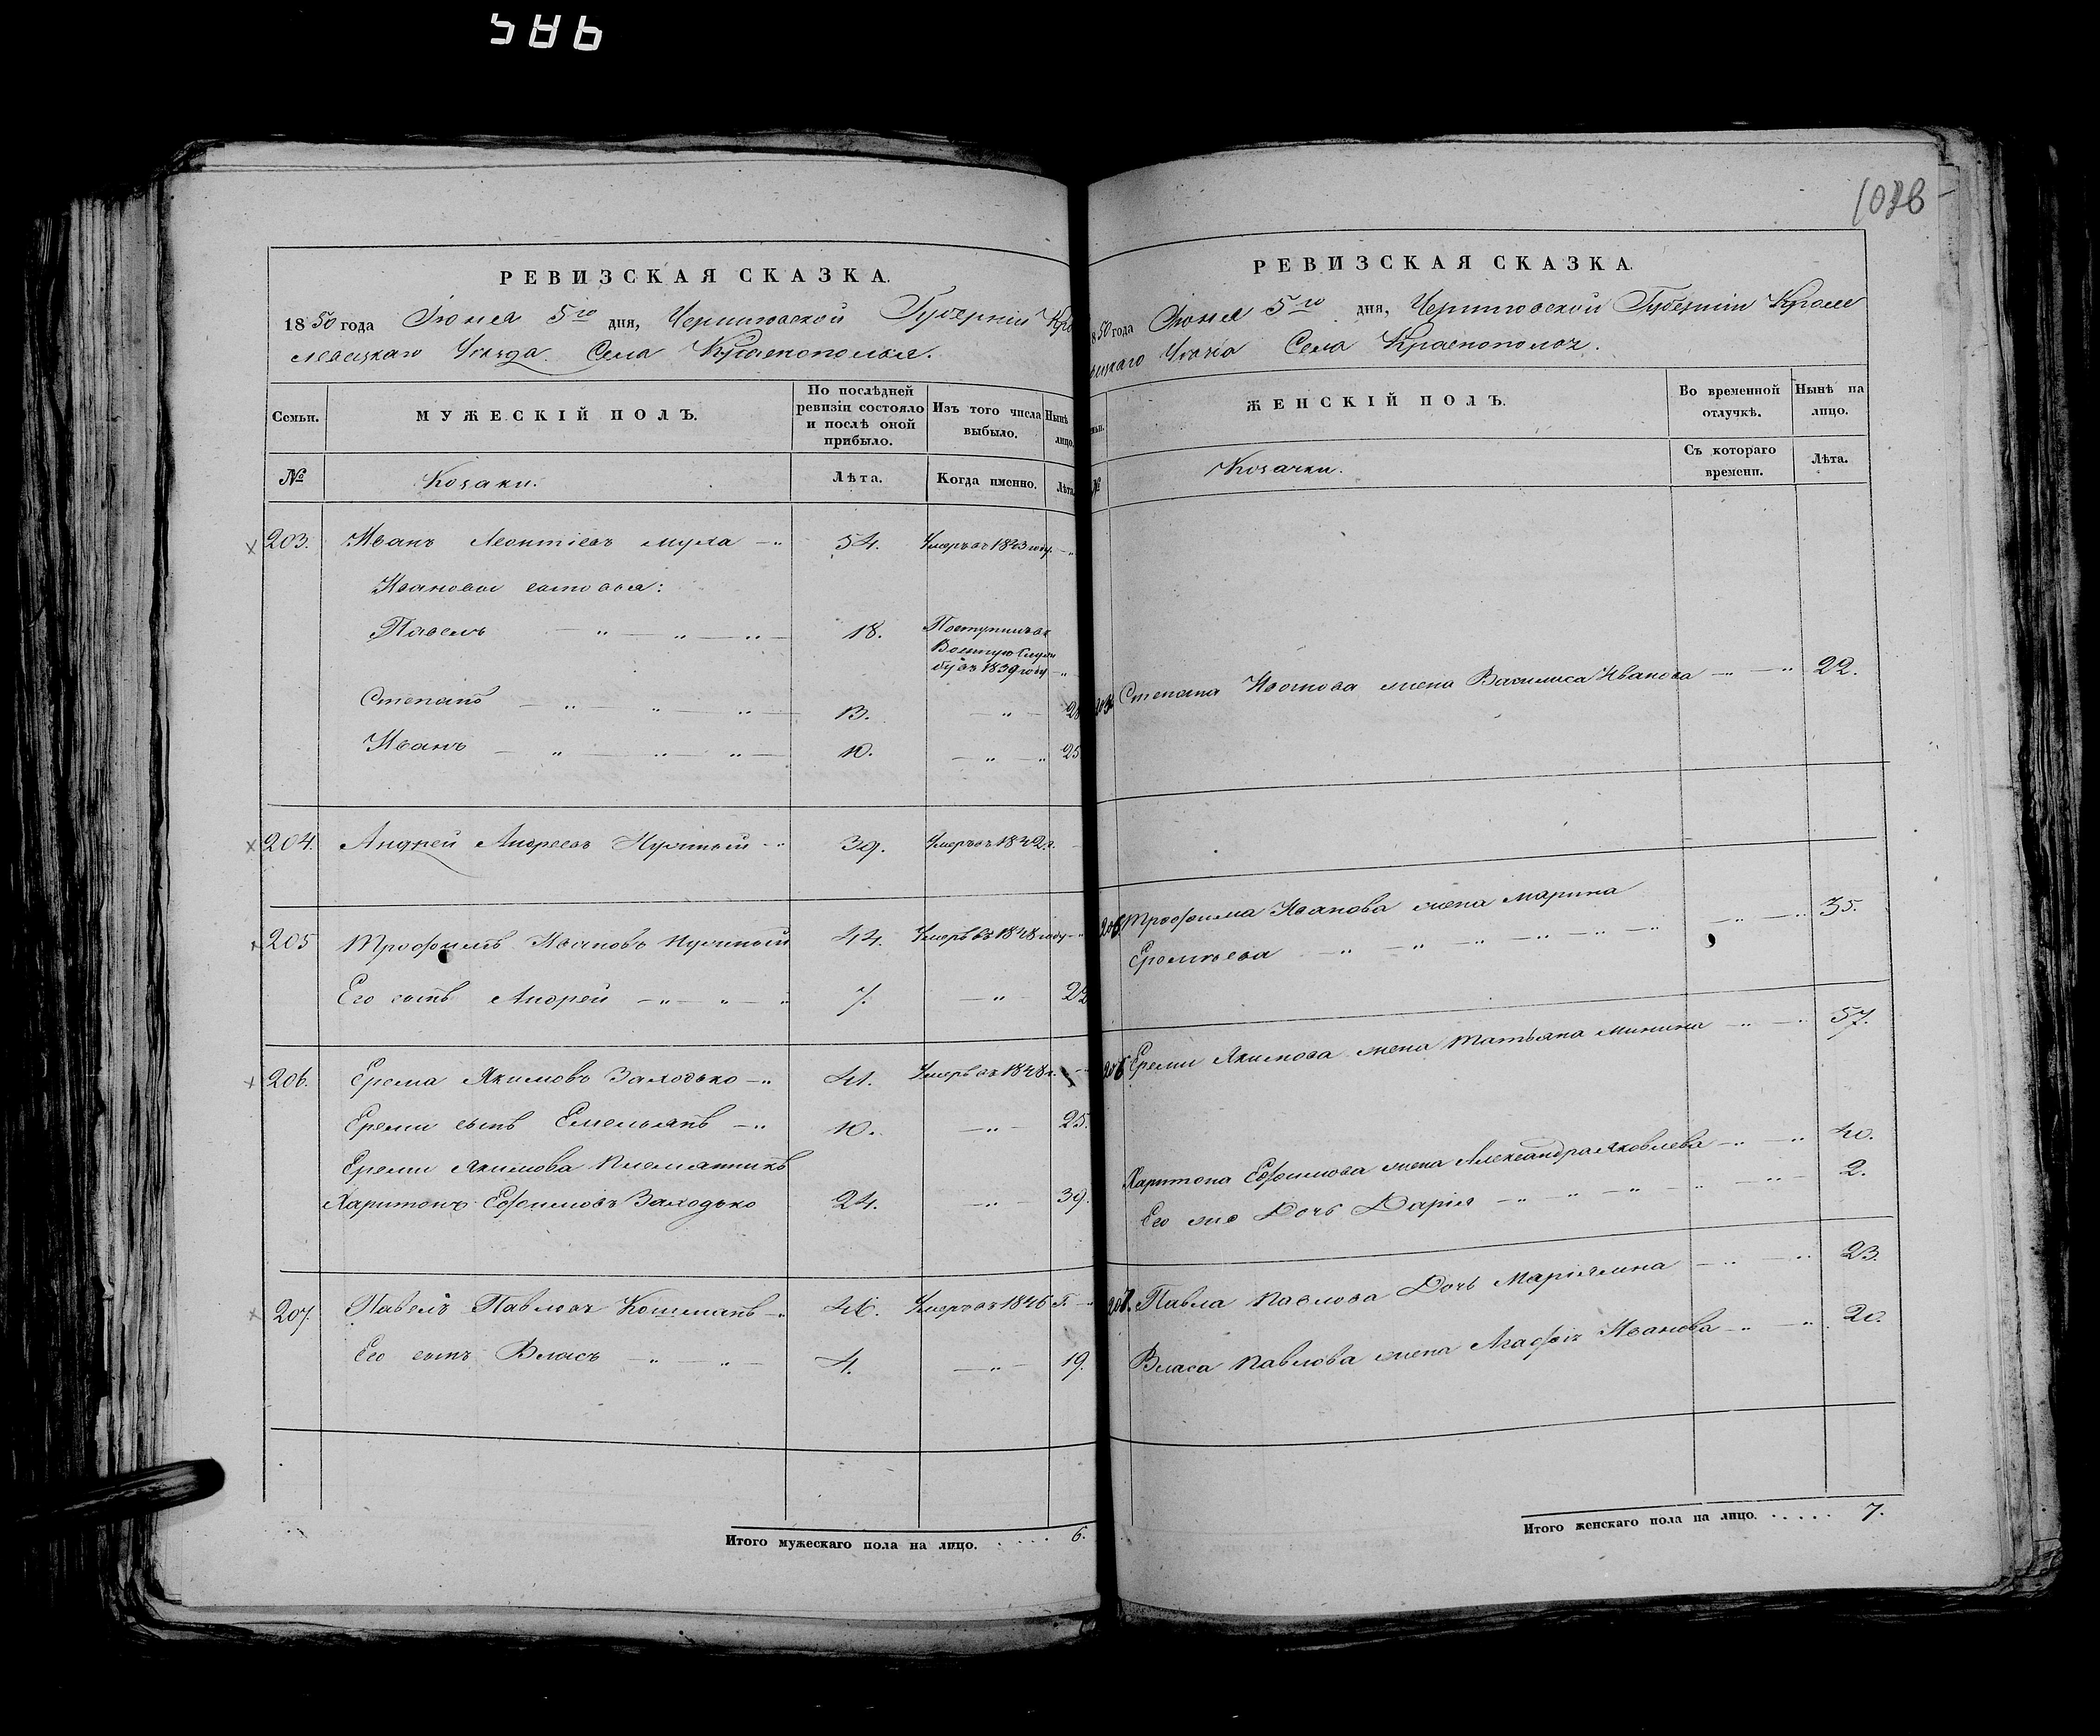 586
РЕВИЗСКАЯ СКАЗКА.
1850 года Іюня 5го дня, Черниговской Губерніи Кро
левецкаго Уѣзда. Села Краснополья.
Семьи.
МУЖЕСКІЙ ПОЛЪ.
По послѣдней ревизіи состояло и послѣ оной прибыло.
Изъ того числа выбыло.
Нынѣ лицо.
№
Козаки.
Лѣта.
Когда именно.
Лѣта.
203. Иванъ Леонтіевъ Мула 54. Умеръ въ 1843 году
Ивановы сыновья:
Павелъ 18. Поступилъ въ
Военную Служ
бу въ 1839 году
Степанъ 13. 28
Иванъ 10. 25
204. Андрей Андреевъ 39. Умеръ въ 1842 г.
205 Трофимъ Ивановъ 44. Умеръ въ 1848 году
Его сынъ Андрей 7. 22
206. Ерема Якимовъ Заходько 41. Умеръ въ 1848 г.
Еремы сынъ Емельянъ 10. 25.
Еремы Якимова племянникъ
Харитонъ Ефимовъ Заходько 24. 39.
207. Павелъ Павловъ Кошманъ 46. Умеръ въ 1846 г.
Его сынъ Власъ 4. 19.
Итого мужескаго пола на лицо. 6.
1026
РЕВИЗСКАЯ СКАЗКА.
1850 года Іюня 5го дня, Черниговской Губерніи Кроле
вецкаго Уѣзда Села Краснополья.
ЖЕНСКІЙ ПОЛЪ.
Во временной отлучкѣ.
Нынѣ на лицо.
№
Козачки.
Съ котораго времени.
Лѣта.
203. Степана Иванова жена Василиса Иванова 22.
205 Трофима Иванова жена Марина
Еремѣева 35.
206 Еремы Якимова жена Татьяна Минина 57.
Харитона Ефимова жена Александра Яковлева 40.
Его же Дочь Дарія 2.
207. Павла Павлова Дочь Маріямна 23.
Власа Павлова жена Агафія Иванова 20.
Итого женскаго пола на лицо. 7.